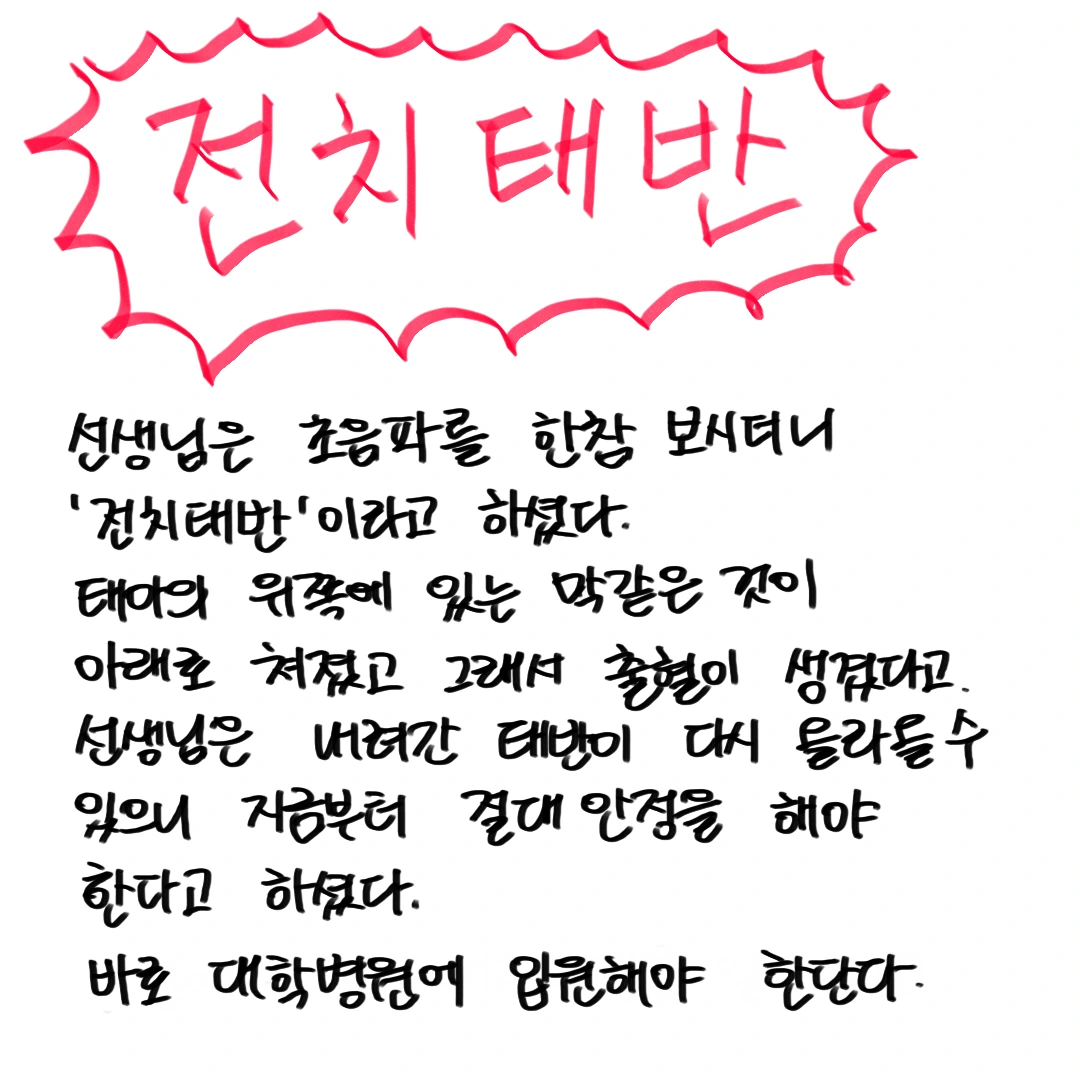 전치태반
선생님은 초음파를 한참 보시더니
'전치태반'이라고 하셨다.
태아의 위쪽에 있는 막같은 것이
아래로 쳐졌고 그래서 출혈이 생겼다고.
선생님은 내려간 태반이 다시 올라올 수
있으니 지금부터 절대 안정을 해야
한다고 하셨다.
바로 대학병원에 입원해야 한단다.